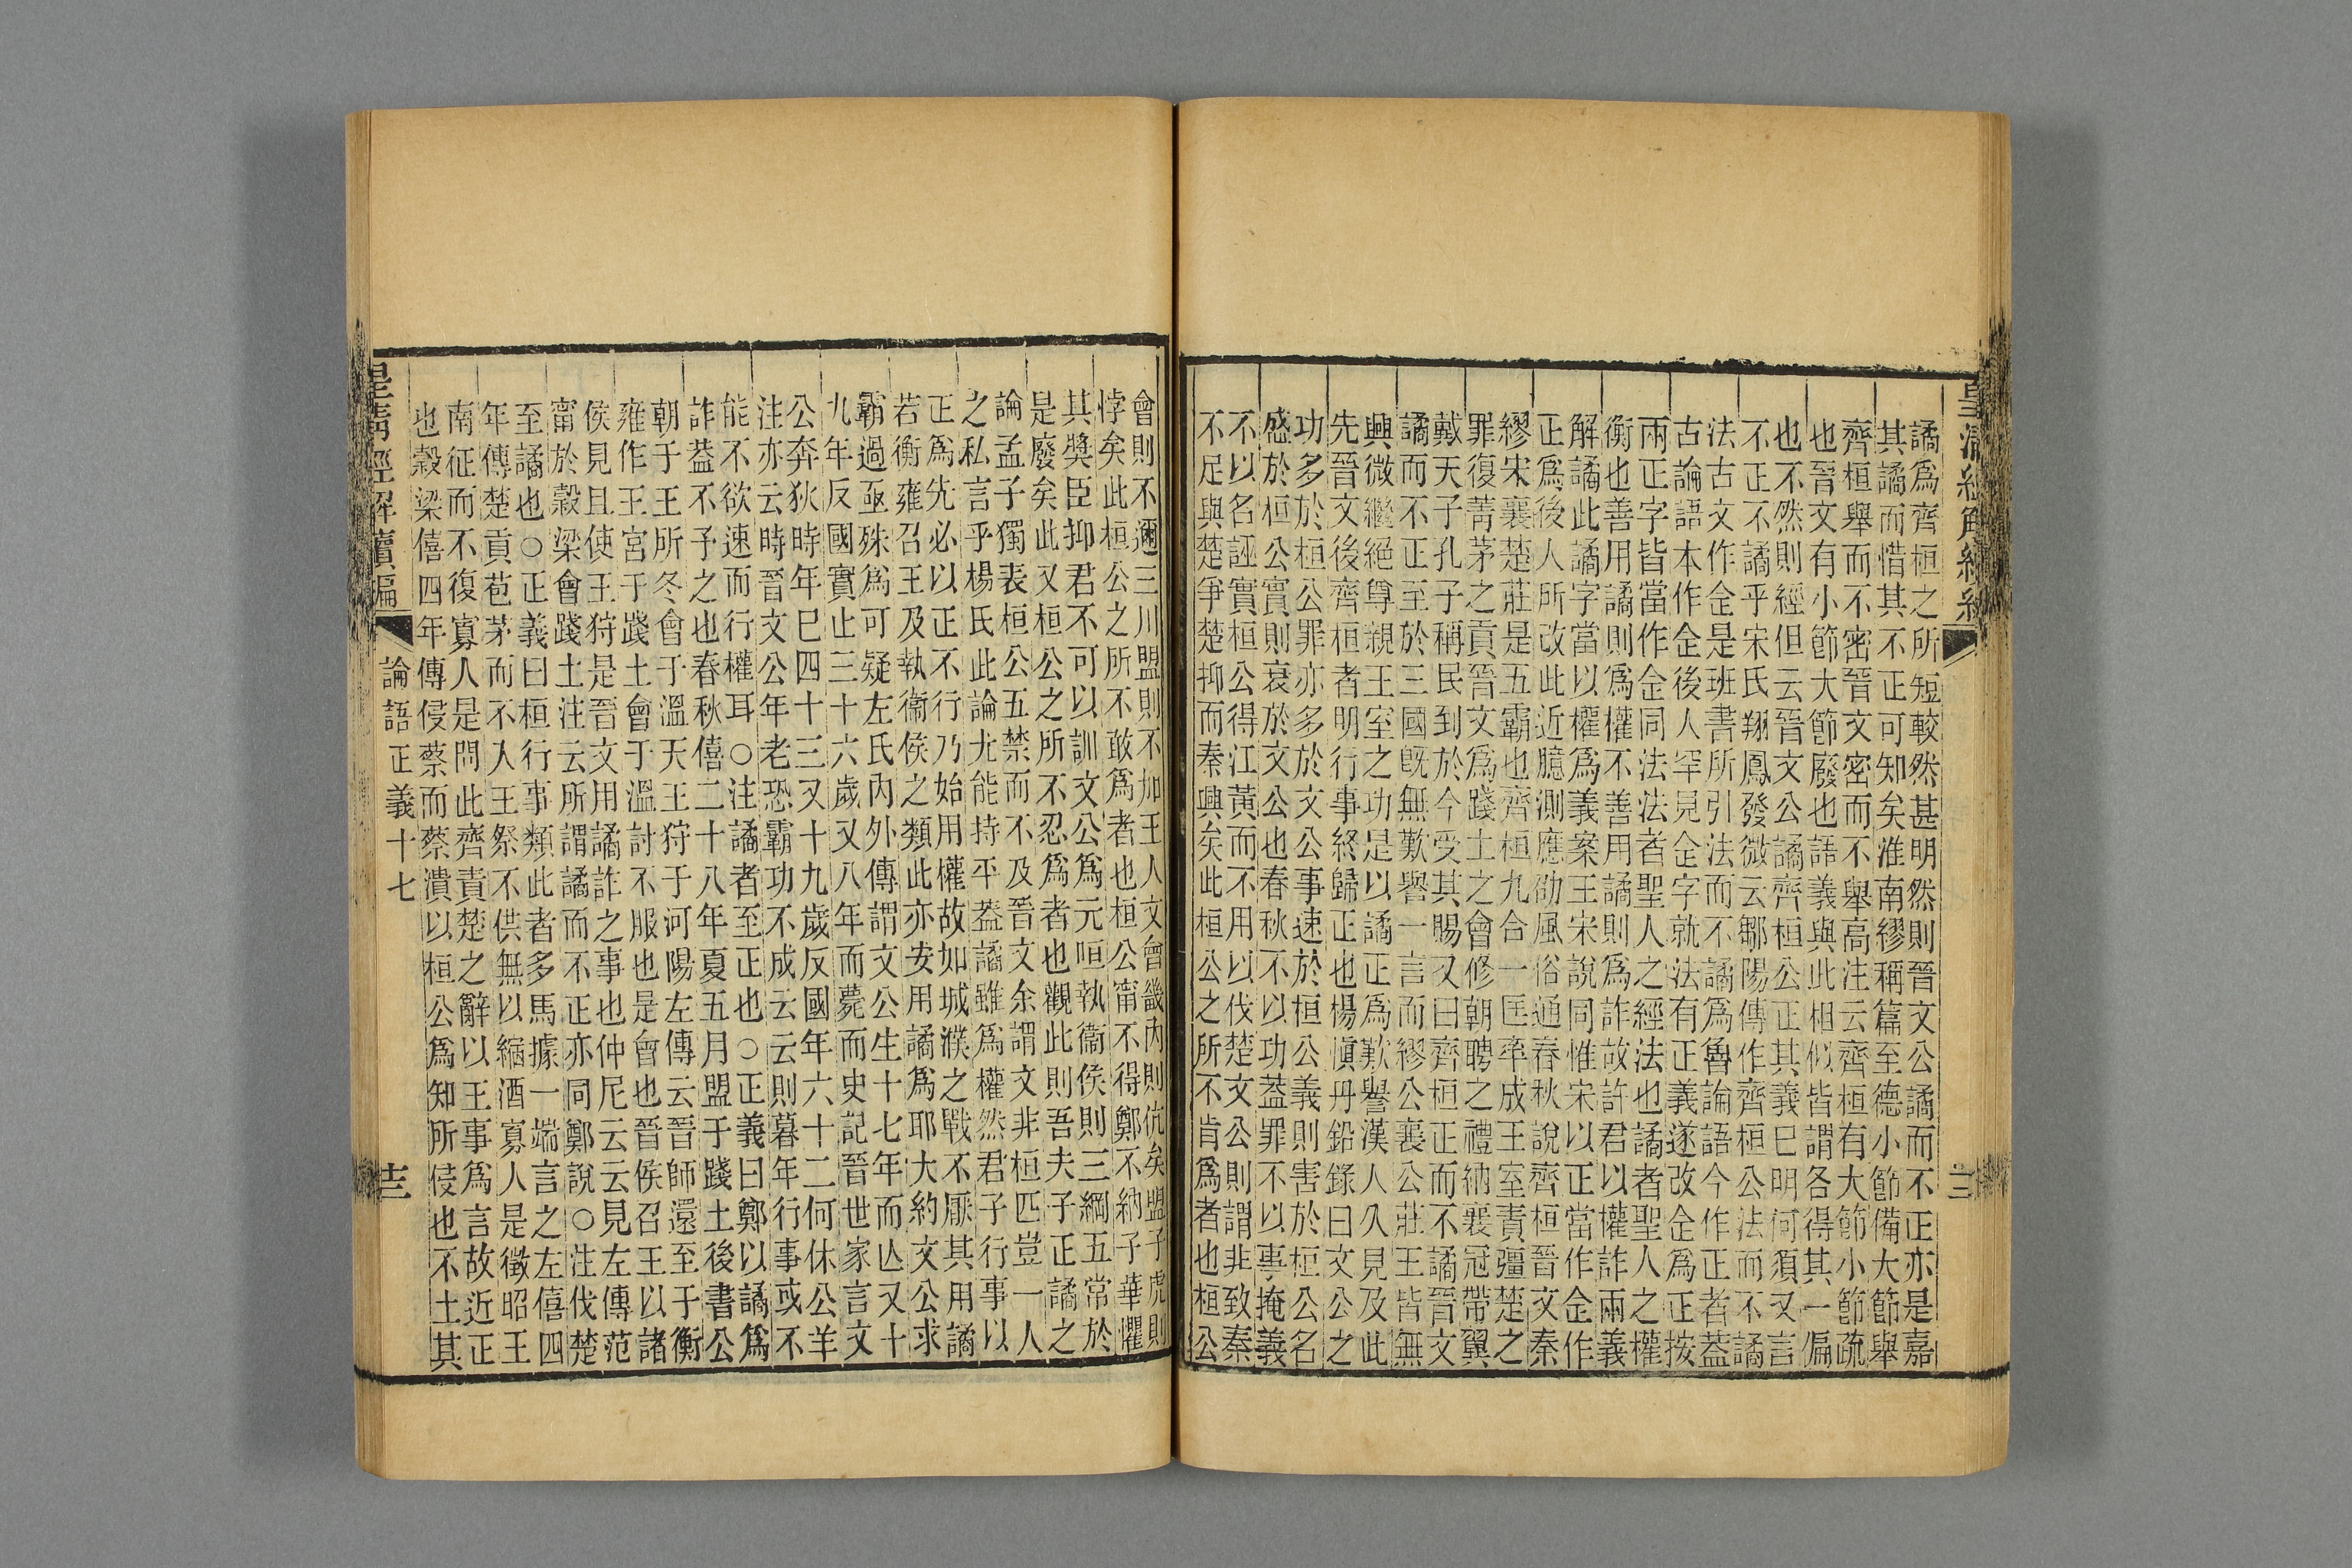 譎爲齊桓之所短較然甚明然則晉文公譎而不正亦是嘉
其譎而惜其不正可知矣淮南繆稱篇至德小節備大節舉
齊桓舉而不密晉文密而不舉高注云齊桓有大節小節疏
也晉文有小節大節廢也語義與此相似皆謂各得其一偏
也不然則經但云晉文公譎齊桓公正其義巳明何須又言
不正不譎乎宋氏翔鳳發微云鄒陽傳作齊桓公法而不譎
法古文作佱是班書所引法而不譎爲魯論語今作正者葢
古論語本作佱後人罕見佱字就法有正義遂改佱爲正按
兩正字皆當作佱同法法者聖人之經法也譎者聖人之權
衡也善用譎則爲權不善用譎則爲詐故許君以權詐兩義
解譎此譎字當以權爲義案王宋說同惟宋以正當作佱作
正爲後人所改此近臆測應劭風俗通春秋說齊桓晉文秦
繆宋襄楚莊是五霸也齊桓九合一匡率成王室責彊楚之
罪復菁茅之貢晉文爲踐土之會修朝聘之禮納襄冠帶翼
戴天子孔子稱民到於今受其賜又曰齊桓正而不譎晉文
譎而不正至於三國旣無歎譽一言而繆公襄公莊王皆無
興微繼絕尊親王室之功是以譎正爲歎譽漢人久見及此
先晉文後齊桓者明行事終歸正也楊愼丹鉛錄曰文公之
功多於桓公罪亦多於文公事速於桓公義則害於桓公名
盛於桓公實則衰於文公也春秋不以功葢罪不以事掩義
不以名誣實桓公得江黃而不用以伐楚文公則謂非致秦
不足與楚爭楚抑而秦興矣此桓公之所不肯爲者也桓公
會則不邇三川盟則不加王人文會畿內則伉矣盟子虎則
悖矣此桓公之所不敢爲者也桓公甯不得鄭不納子華懼
其獎臣抑君不可以訓文公爲元咺執衞侯則三綱五常於
是廢矣此又桓公之所不忍爲者也觀此則吾夫子正譎之
論孟子獨表桓公五禁而不及晉文余謂文非桓匹豈一人
之私言乎楊氏此論尤能持平葢譎雖爲權然君子行事以
正爲先必以正不行乃始用權故如城濮之戰不厭其用譎
若衡雍召王及執衞侯之類此亦安用譎爲耶大約文公求
霸過亟殊爲可疑左氏內外傳謂文公生十七年而亾又十
九年反國實止三十六歲又八年而薨而史記晉世家言文
公奔狄時年巳四十三又十九歲反國年六十二何休公羊
注亦云時晉文公年老恐霸功不成云云則暮年行事或不
能不欲速而行權耳○注譎者至正也○正義曰鄭以譎爲
詐葢不予之也春秋僖二十八年夏五月盟于踐土後書公
朝于王所冬會于溫天王狩于河陽左傳云晉師還至于衡
雍作王宮于踐土會于溫討不服也是會也晉侯召王以諸
侯見且使王狩是晉文用譎詐之事也仲尼云云見左傳范
甯於穀梁會踐土注云所謂譎而不正亦同鄭說○注伐楚
至譎也○正義曰桓行事類此者多馬據一端言之左僖四
年傳楚貢苞茅而不入王祭不供無以縮酒寡人是徵昭王
南征而不復寡人是問此齊責楚之辭以王事爲言故近正
也穀梁僖四年傳侵蔡而蔡潰以桓公爲知所侵也不土其
皇淸經解續編
論語正義十七
十三